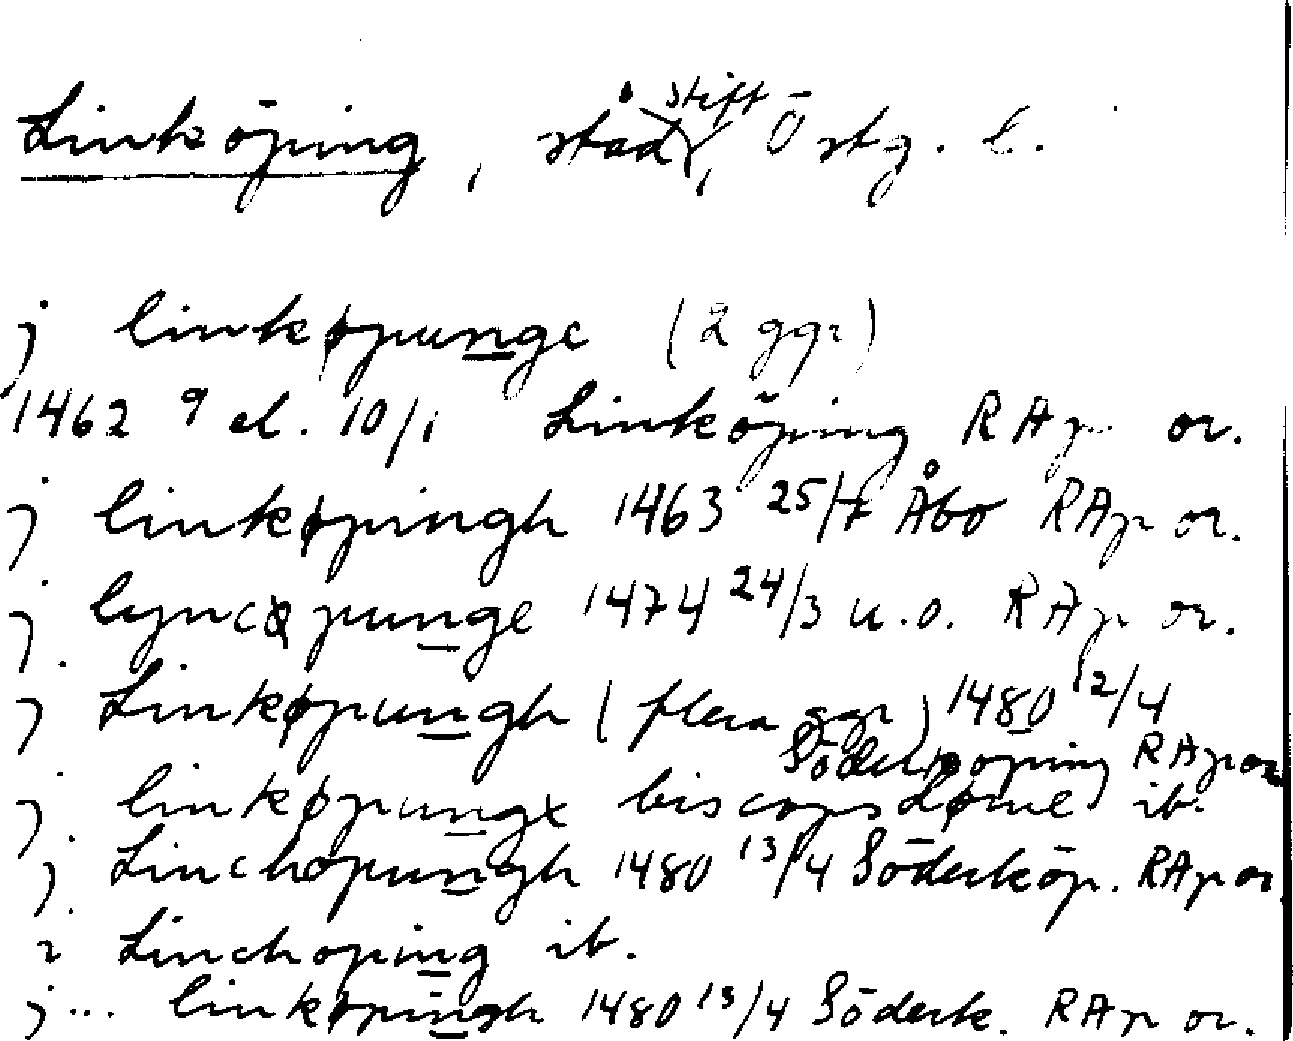 Linköping, stad, stift, Östg. l.
j linkøpunge (2 ggr)
1462 9 el. 10/1 Linköping RAp or.
j linkøpingh 1463 25/7 Åbo RAp or.
j lyncøpunge 1474 24/3 u.o. RAp or.
j Linkøpungh (flera ggr) 1480 12/4
Söderköping RAp or
j linkøpungx biscopsdøme ib.
j Linchopungh 1480 13/4 Söderköp. RAp or
i Linchoping ib.
j... linkøpingh 1480 13/4 Söderk. RAp or.